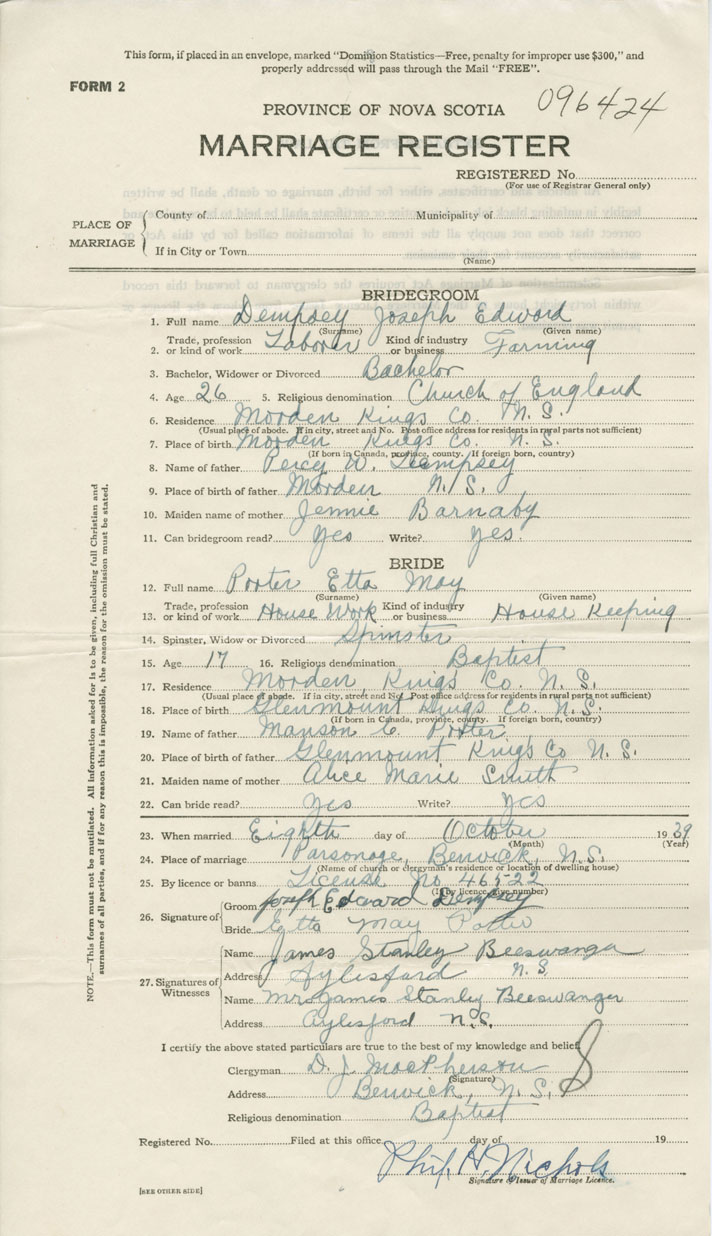 This form, if placed in an envelope, marked "Dominion Statistics—Free, penalty for improper use $300," and
properly addressed will pass through the Mail "FREE".
FORM 2
096424
PROVINCE OF NOVA SCOTIA
MARRIAGE REGISTER
REGISTERED No.
(For use of Registrar General only)
PLACE OF MARRIAGE
County of Municipality of
If in City or Town
(Name)
BRIDEGROOM
1. Full name Dempsey Joseph Edward
(Surname) (Given name)
2. Trade, profession or kind of work Laborer Kind of industry or business Farming
3. Bachelor, Widower or Divorced Bachelor
4. Age 26 5. Religious denomination Church of England
6. Residence Morden Kings Co. N.S.
(Usual place of abode. If in city, street and No. Post office address for residents in rural parts not sufficient)
7. Place of birth Morden Kings Co. N.S.
(If born in Canada, province, county. If foreign born, country)
8. Name of father Percy W. Dempsey
9. Place of birth of father Morden N.S.
10. Maiden name of mother Jennie Barnaby
11. Can bridegroom read? Yes Write? Yes.
BRIDE
12. Full name Porter Etta May
(Surname) (Given name)
13. Trade, profession or kind of work House Work Kind of industry or business House Keeping
14. Spinster, Widow or Divorced Spinster
15. Age 17 16. Religious denomination Baptist
17. Residence Morden, Kings Co. N.S.
(Usual place of abode. If in city, street and No. Post office address for residents in rural parts not sufficient)
18. Place of birth Glenmount Kings Co. N.S.
(If born in Canada, province, county. If foreign born, country)
19. Name of father Manson C. Porter
20. Place of birth of father Glenmount Kings Co N.S.
21. Maiden name of mother Alice Marie Smith
22. Can bride read? Yes Write? Yes
23. When married Eighth day of October 1939
(Month) (Year)
24. Place of marriage Parsonage, Berwick, N.S.
(Name of church or clergyman's residence or location of dwelling house)
25. By licence or banns License no 46522
(If by licence, give number)
26. Signature of
Groom Joseph Edward Dempsey
Bride Etta May Porter
27. Signatures of Witnesses
Name James Stanley Beeswanger
Address Aylesford N.S.
Name Mrs James Stanley Beeswanger
Address Aylesford N.S.
I certify the above stated particulars are true to the best of my knowledge and belief.
Clergyman D. J. MacPherson
(Signature)
Address Berwick, N.S.
Religious denomination Baptist
Registered No. Filed at this office day of 19
Phil. H. Nichols
Signature of Issuer of Marriage Licence.
[SEE OTHER SIDE]
NOTE.—This form must not be mutilated. All information asked for is to be given, including full Christian and
surnames of all parties, and if for any reason this is impossible, the reason for the omission must be stated.